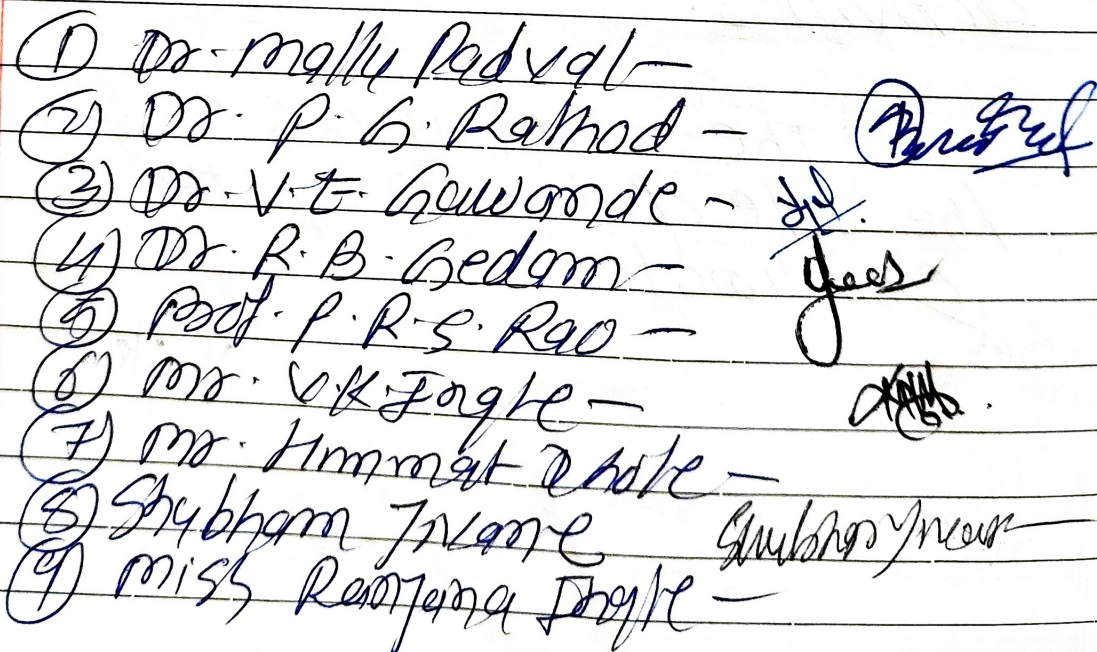 ① Dr. Mally Padval –
② Dr. P. G. Rathod –
③ Dr. V. E. Gawande –
④ Dr. R. B. Gedam –
⑤ Prof. P. R. S. Rao –
⑥ Mr. V.K. Ingle –
⑦ Mr. Himmat Dhole –
⑧ Shubham
⑨ Miss Ranjana Ingle –